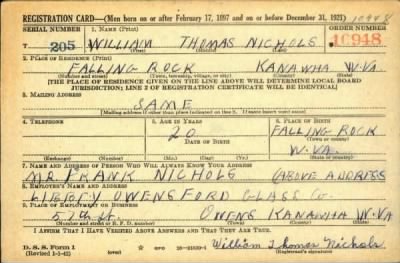 REGISTRATION CARD—(Men born on or after February 17, 1897 and on or before December 31, 1921) 10948
SERIAL NUMBER 1. NAME (Print) ORDER NUMBER
T 205 WILLIAM THOMAS NICHOLS 10948
(First) (Middle) (Last)
2. PLACE OF RESIDENCE (Print)
FALLING ROCK KANAWHA W.VA
(Number and street) (Town, township, village, or city) (County) (State)
[THE PLACE OF RESIDENCE GIVEN ON THE LINE ABOVE WILL DETERMINE LOCAL BOARD
JURISDICTION; LINE 2 OF REGISTRATION CERTIFICATE WILL BE IDENTICAL]
3. MAILING ADDRESS
SAME
[Mailing address if other than place indicated on line 2. If same insert word same]
4. TELEPHONE 5. AGE IN YEARS 6. PLACE OF BIRTH
20 FALLING ROCK
DATE OF BIRTH (Town or county)
W.VA.
(Exchange) (Number) (Mo.) (Day) (Yr.) (State or country)
7. NAME AND ADDRESS OF PERSON WHO WILL ALWAYS KNOW YOUR ADDRESS
MR. FRANK NICHOLS (ABOVE ADDRESS
8. EMPLOYER'S NAME AND ADDRESS
LIBBEY OWENS FORD GLASS CO.
9. PLACE OF EMPLOYMENT OR BUSINESS
57th St. OWENS KANAWHA W.VA
(Number and street or R. F. D. number) (Town) (County) (State)
I AFFIRM THAT I HAVE VERIFIED ABOVE ANSWERS AND THAT THEY ARE TRUE.
D. S. S. Form 1
(Revised 1-1-42) GPO 16-21630-1 William Thomas Nichols
(Registrant's signature)